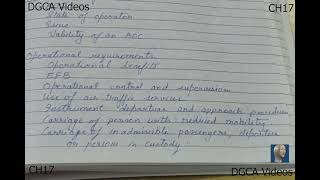 DGCA Videos
CH17
State of operator
Issue
Validity of an AOC
Operational requirements
Operational benefit
EFB
Operational control and supervision
Use of air traffic services
Instrument departure and approach procedures
Carriage of person with reduced mobility
Carriage of inadmissible passengers, deportees
or persons in custody
CH17
DGCA Videos